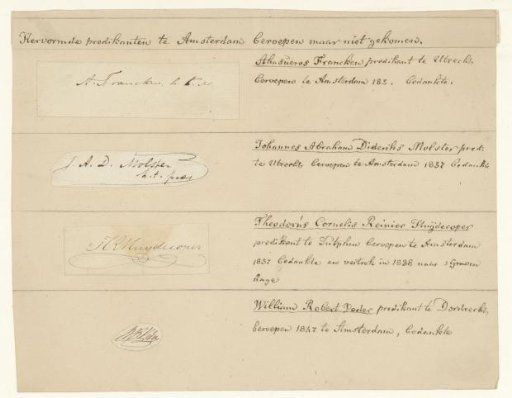 Hervormde predikanten te Amsterdam beroepen maar niet gekomen.
Ahasueros Francken predikant te Utrecht
beroepen te Amsterdam 183. bedankte.
A. Francken
Johannes Abraham Diderikus Molster pred:
te Utrecht, beroepen te Amsterdam 1837 bedankte
J A. D. Molster
Theodorus Cornelis Reinier Huydecoper
predikant te Zutphen beroepen te Amsterdam
1837 bedankte en vertrok in 1838 naar 'sGraven
hage
Huydecoper
William Robert Veder predikant te Dordrecht,
beroepen 1847 te Amsterdam, bedankte